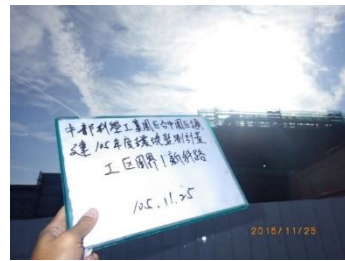 中部科學工業園區台中園區擴
建105年度環境監測計畫
工區周界1新科路
105.11.25
2016/11/25